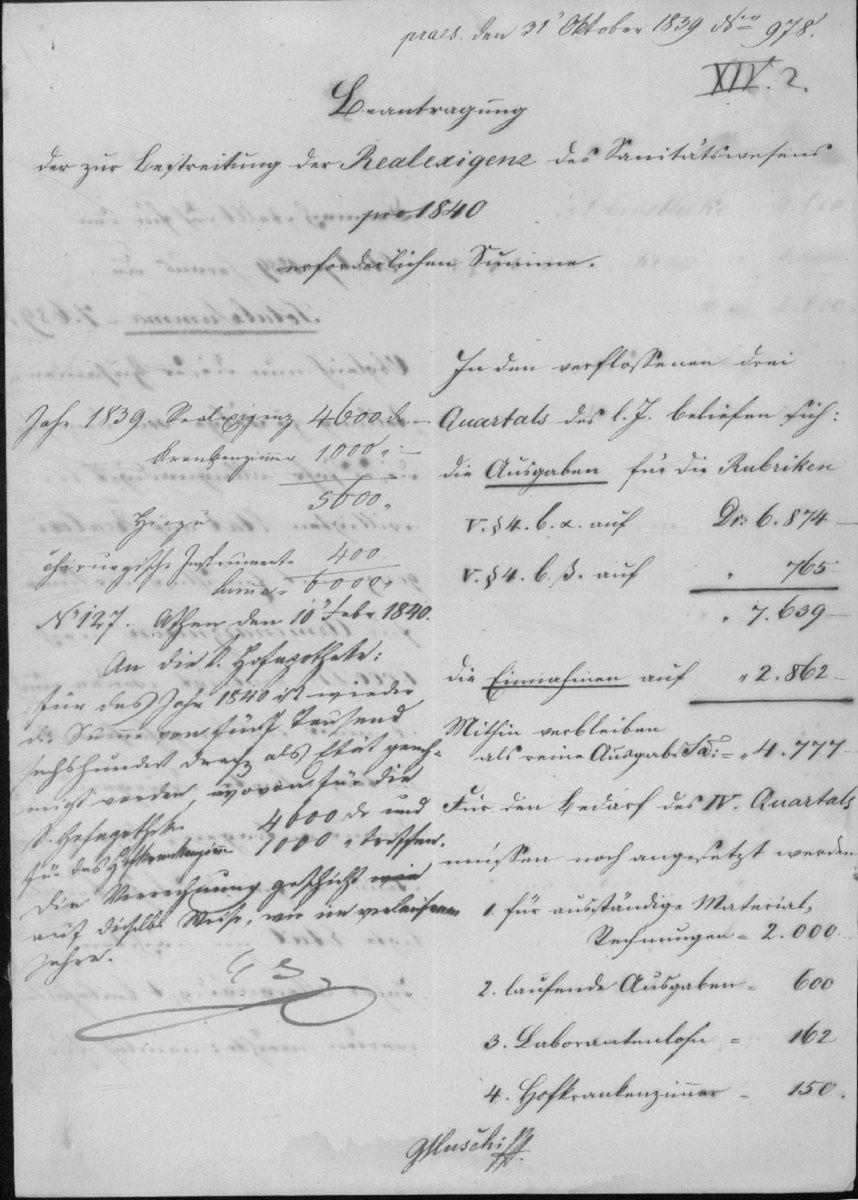 praes. den 31' Oktober 1839 No 978.
XIV. 2.
Beantragung
der zur Bestreitung der Realexigenz des Sanitätswesens
pro 1840
erforderlichen Summe.
Jahr 1839. Realexigenz 4600 dr. –
Krankenzimmer 1000 „ –
5600 „
Hiezu
chirurgische Instrumente 400
Summa = 6000 „
No 127. Athen den 10' Febr 1840.
An die k. Hofapotheke:
für das Jahr 1840 ist wieder
die Summe von fünf Tausend
sechshundert drach als Etat geneh-
migt worden, wovon für die
k. Hofapotheke 4600 dr und
für das Hofkrankenzimmer 1000 „ treffen.
Die Verrechnung geschieht
auf dieselbe Weise, wie im verflossenen
Jahre.
In den verflossenen drei
Quartals des l. J. beliefen sich:
die Ausgaben für die Rubriken
V. § 4. b. α. auf Dr: 6.874 –
V. § 4. b. β. auf „ 765
„ 7.639 –
die Einnahmen auf „ 2.862 –
Mithin verbleiben
als reine Ausgabe Sa: = „ 4.777 –
Für den Bedarf des IV. Quartals
müssen noch angesetzt werden
1. für ausständige Material,
Rechnungen = 2.000.
2. laufende Ausgaben = 600
3. Laborantenlohn = 162
4. Hofkrankenzimmer = 150.